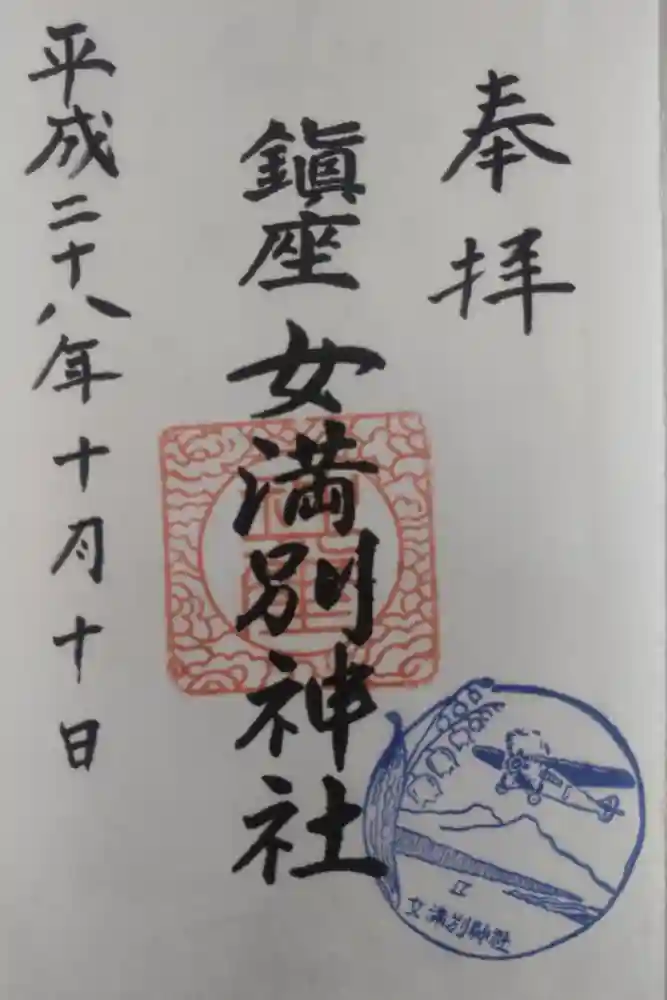 奉拝
鎭座
女満別神社
平成二十八年十月十日
女満別神社